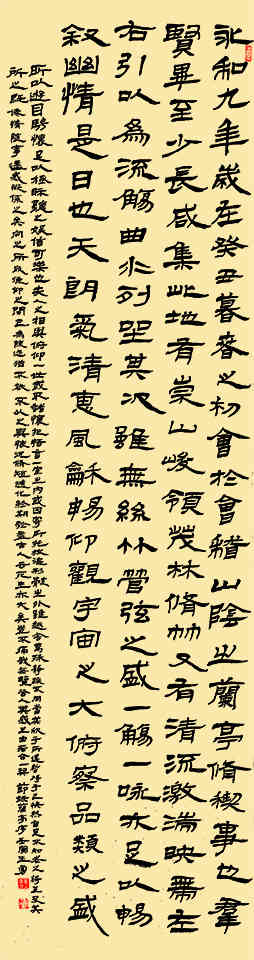 永和九年歲在癸丑暮春之初會於會稽山陰之蘭亭脩禊事也群
賢畢至少長咸集此地有崇山峻領茂林脩竹又有清流激湍映帶左
右引以為流觴曲水列坐其次雖無絲竹管弦之盛一觴一詠亦足以暢
敘幽情是日也天朗氣清惠風龢暢仰觀宇宙之大俯察品類之盛
所以遊目騁懷足以極視聽之娛信可樂也夫人之相與俯仰一世或取諸懷抱悟言一室之內或因寄所託放浪形骸之外雖趣舍萬殊靜躁不同當其欣於所遇暫得於己快然自足不知老之將至及其
所之既倦情隨事遷感慨係之矣向之所欣俯仰之間已為陳迹猶不能不以之興懷況脩短隨化終期於盡古人云死生亦大矣豈不痛哉每攬昔人興感之由若合一契 節錄蘭亭序